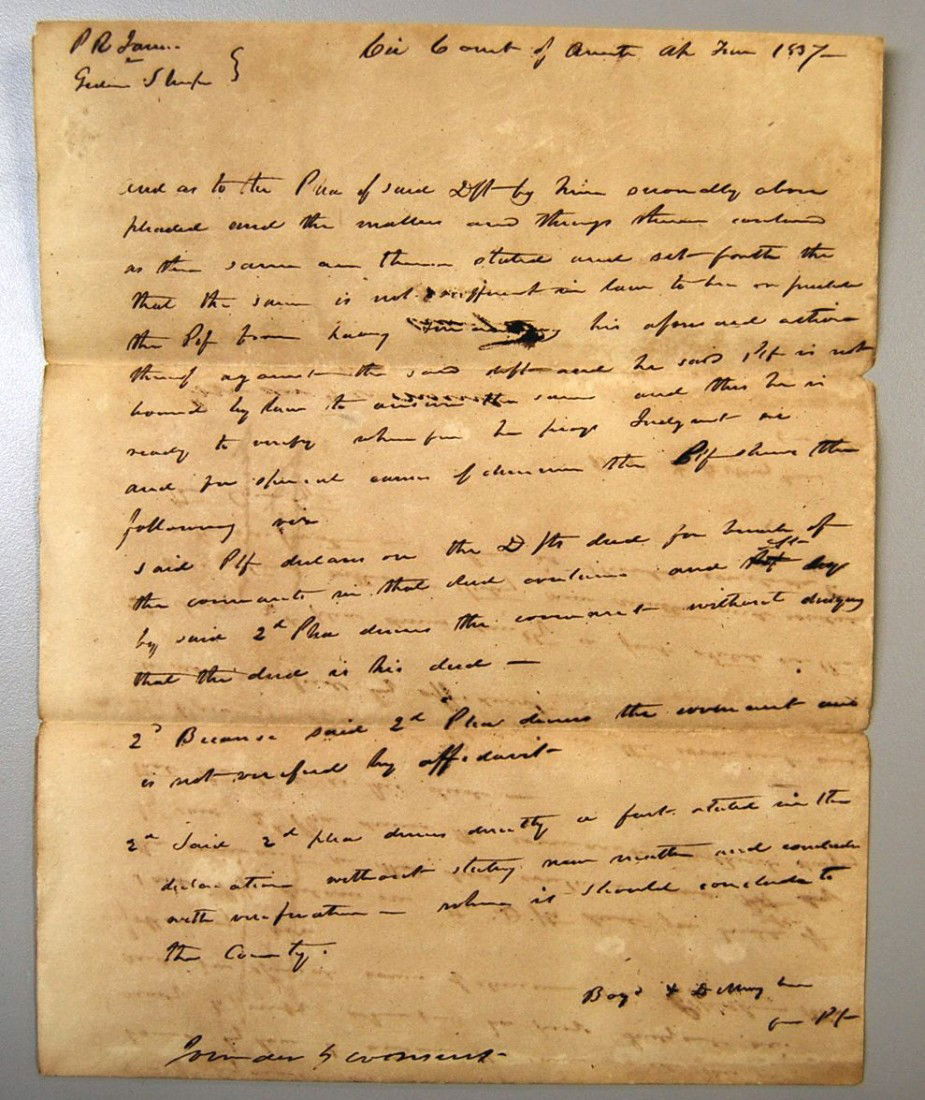 P R
vs
Cir Court of Ap Term 1837
and as to the Plea of said Dft by him secondly above
pleaded and the matters and things therein contained
as the same are therein stated and set forth the
that the same is not sufficient in law to bar or preclude
the Plf from having his aforesaid action
thereof against the said deft and he said Plf is not
bound by law to answer the same and this he is
ready to verify wherefore he prays Judgment
and for special causes of demurrer the Plf shows the
following viz
said Plf declares on the Dfts deed for breach of
the covenants in that deed contained and deft
by said 2d Plea denies the covenant without denying
that the deed is his deed —
2d Because said 2d Plea denies the covenant and
is not verified by affidavit
2d Said 2d plea denies directly a fact stated in the
declaration without stating new matter and concludes
with verification — when it should conclude to
the County.
Boyd &
for Plf
Joinder by consent